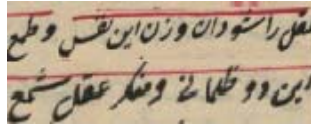 عقل را شو دان و زن این نفس و طمع
این دو ظلمانی و منکر عقل شمع